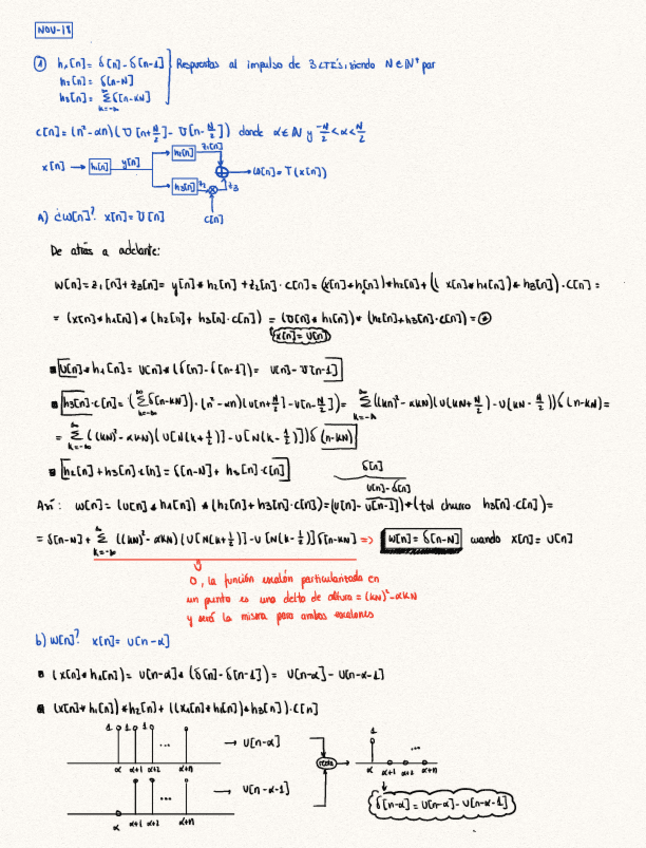 NOV-18
① h₁[n] = δ[n] - δ[n-1] } Respuestas al impulso de 3 LTE's, siendo N ∈ ℕ⁺ par
h₂[n] = δ[n-N]
h₃[n] = Σ_{k=-∞}^{∞} δ[n-kN]
c[n] = (n²-αn)(U[n+N/2] - U[n-N/2]) donde α ∈ ℕ y -N/2 < α < N/2
x[n] → h₁[n] y[n] h₂[n] z₁[n] ⊕ → ω[n] = T(x[n])
h₃[n] z₂ ⊗ z₃
c[n]
A) ¿w[n]? x[n] = U[n]
De atrás a adelante:
w[n] = z₁[n] + z₃[n] = y[n] * h₂[n] + z₂[n] · c[n] = (x[n] * h₁[n]) * h₂[n] + ((x[n] * h₁[n]) * h₃[n]) · c[n] =
= (x[n] * h₁[n]) * (h₂[n] + h₃[n] · c[n]) = (U[n] * h₁[n]) * (h₂[n] + h₃[n] · c[n]) = ⊛
x[n] = U[n]
▪ U[n] * h₁[n] = U[n] * (δ[n] - δ[n-1]) = U[n] - U[n-1]
▪ h₃[n] · c[n] = (Σ_{k=-∞}^{∞} δ[n-kN]) · (n²-αn)(U[n+N/2] - U[n-N/2]) = Σ_{k=-∞}^{∞} ((kN)²-αkN)(U[kN+N/2] - U[kN-N/2]) δ[n-kN] =
= Σ_{k=-∞}^{∞} ((kN)²-αkN)(U[N(k+1/2)] - U[N(k-1/2)]) δ[n-kN]
▪ h₂[n] + h₃[n] · c[n] = δ[n-N] + h₃[n] · c[n]
δ[n]
U[n] - δ[n]
Así: w[n] = (U[n] * h₁[n]) * (h₂[n] + h₃[n] · c[n]) = (U[n] - U[n-1]) * (tol churro h₃[n] · c[n]) =
= δ[n-N] + Σ_{k=-∞}^{∞} ((kN)²-αkN)(U[N(k+1/2)] - U[N(k-1/2)]) δ[n-kN] => w[n] = δ[n-N] cuando x[n] = U[n]
0, la función escalón particularizada en
un punto es una delta de altura = (kN)²-αkN
y será la misma para ambos escalones
b) w[n]? x[n] = U[n-α]
▪ (x[n] * h₁[n]) = U[n-α] * (δ[n] - δ[n-1]) = U[n-α] - U[n-α-1]
▪ (x[n] * h₁[n]) * h₂[n] + ((x[n] * h₁[n]) * h₃[n]) · c[n]
1 1 1 ... → U[n-α]
α α+1 α+2 α+n
resta →
1 ...
α α+1 α+2 α+n
... → U[n-α-1]
α α+1 α+2 α+n
δ[n-α] = U[n-α] - U[n-α-1]